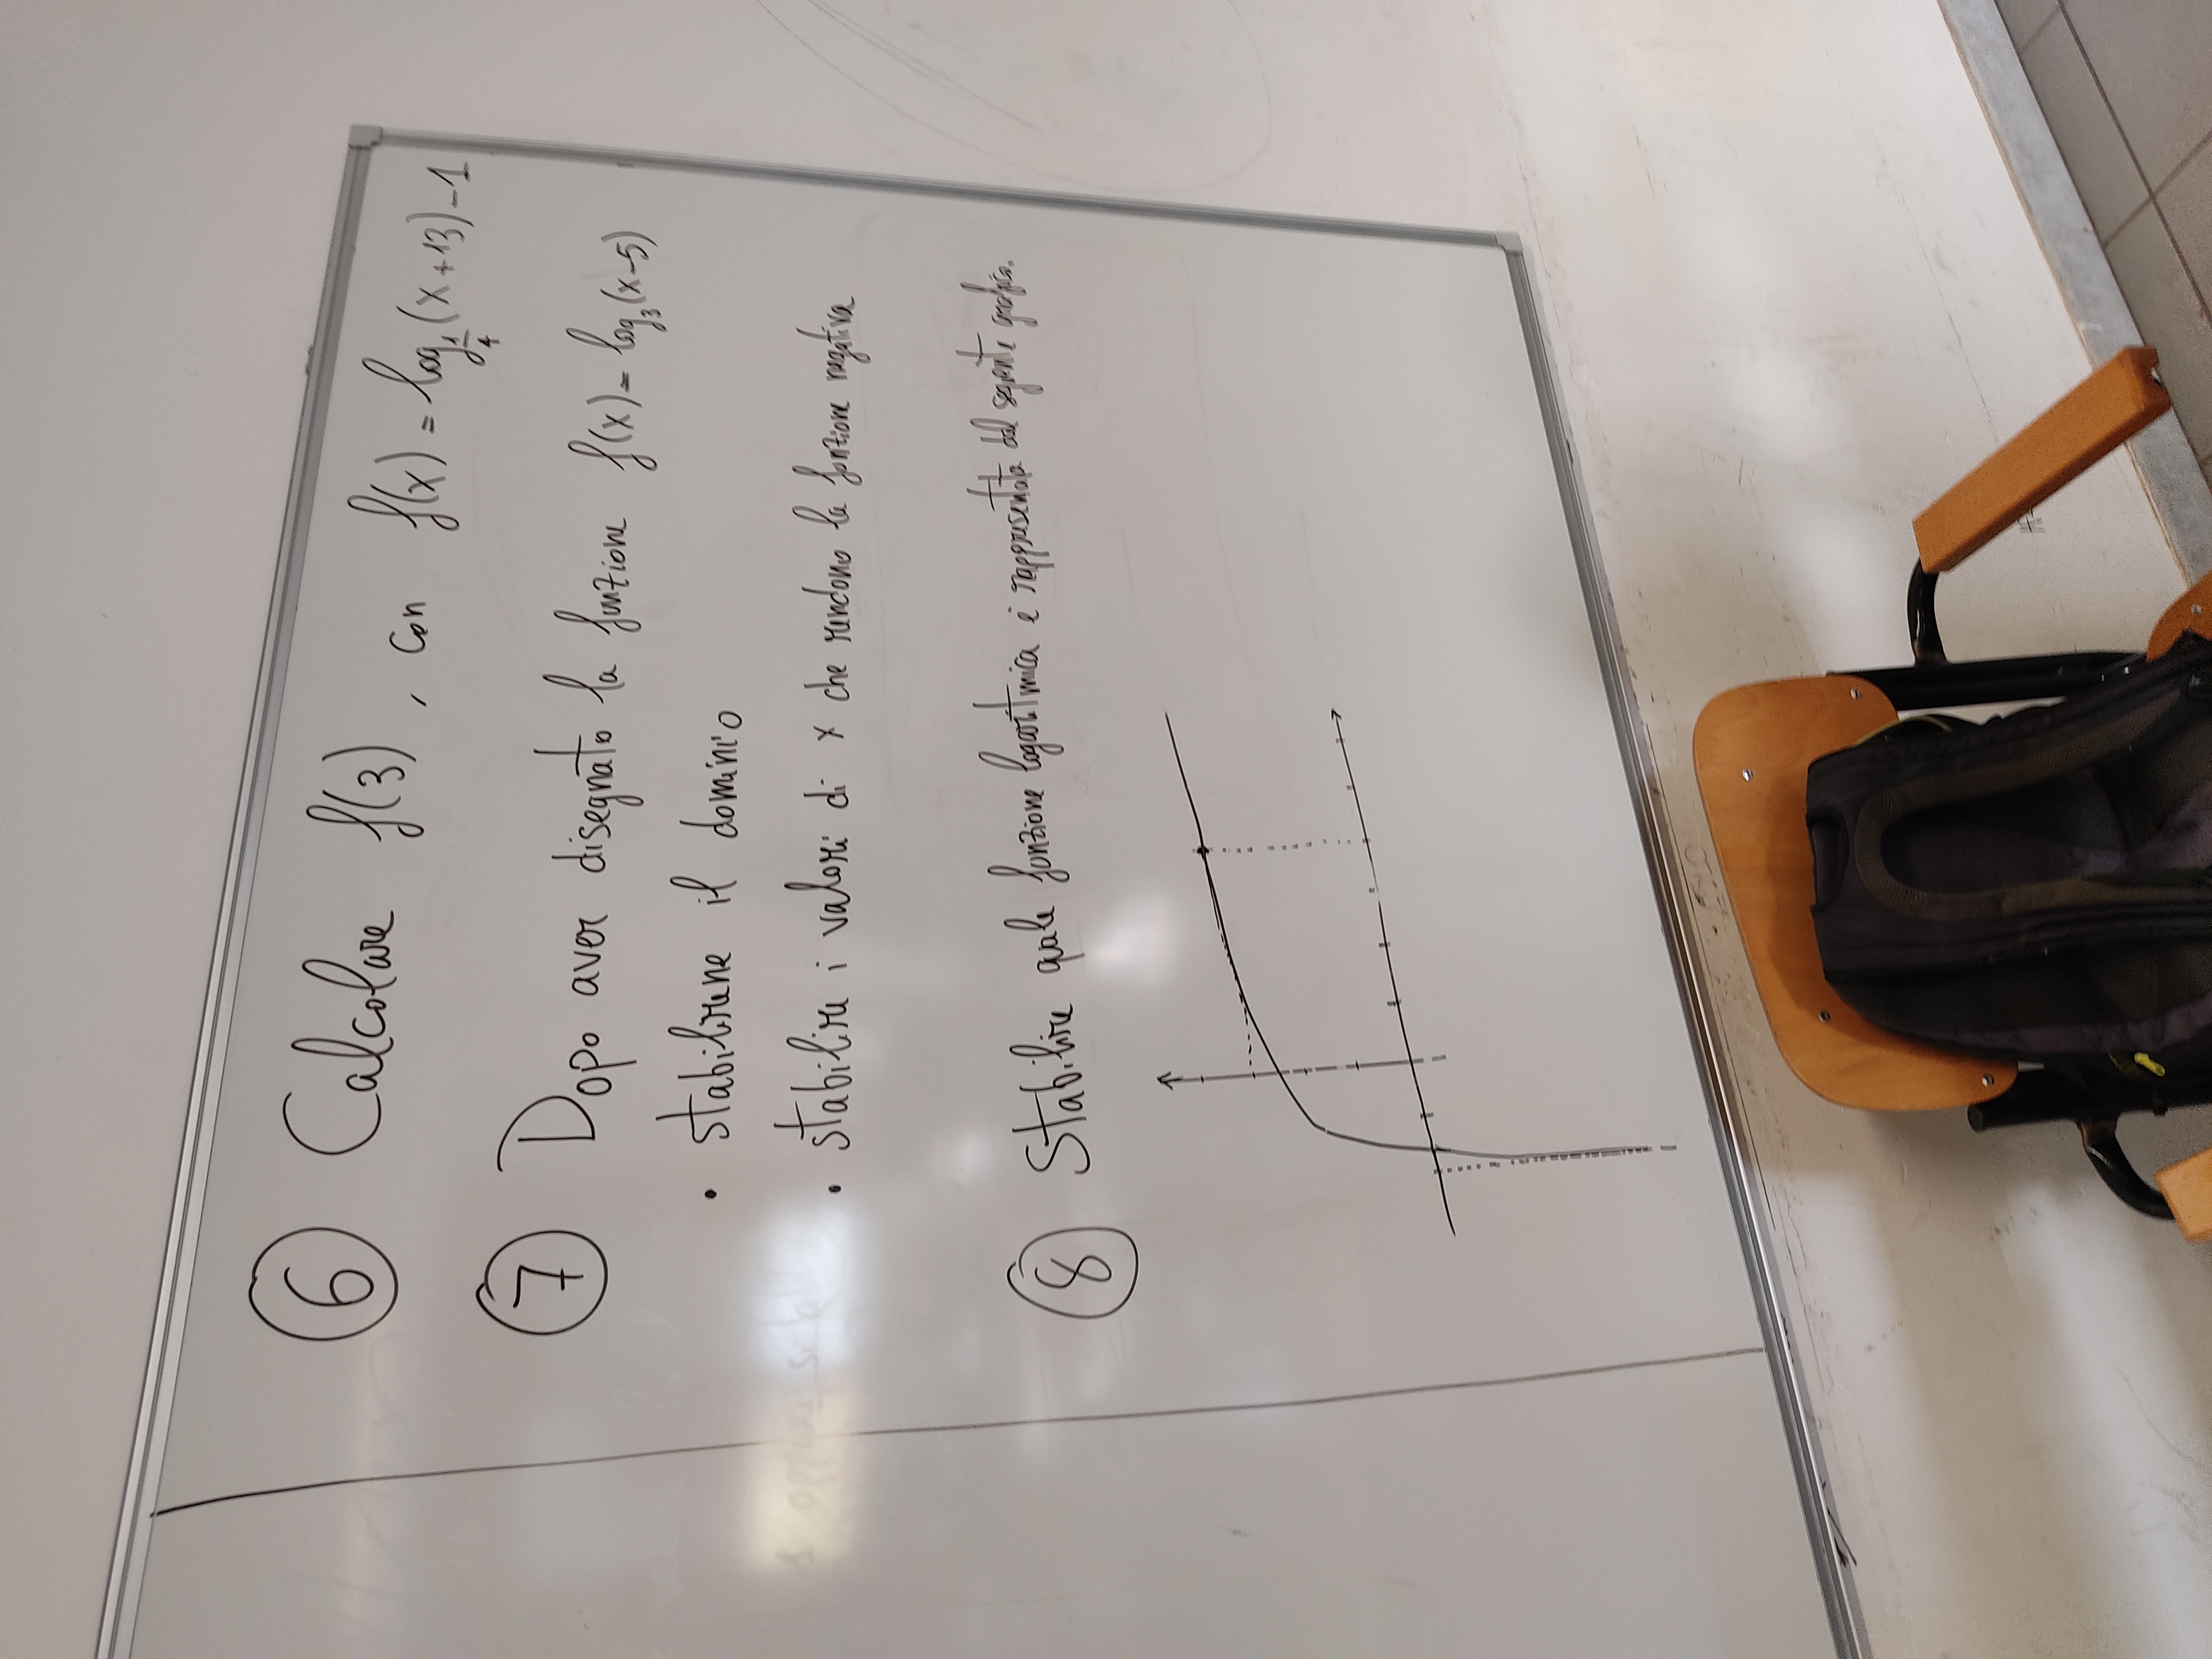 6 Calcolare f(3), con f(x) = log_{1/4}(x+13)-1
7 Dopo aver disegnato la funzione f(x) = log_3(x-5)
• stabilirne il dominio
• stabilire i valori di x che rendono la funzione negativa
8 Stabilire quale funzione logaritmica è rappresentata dal seguente grafico.